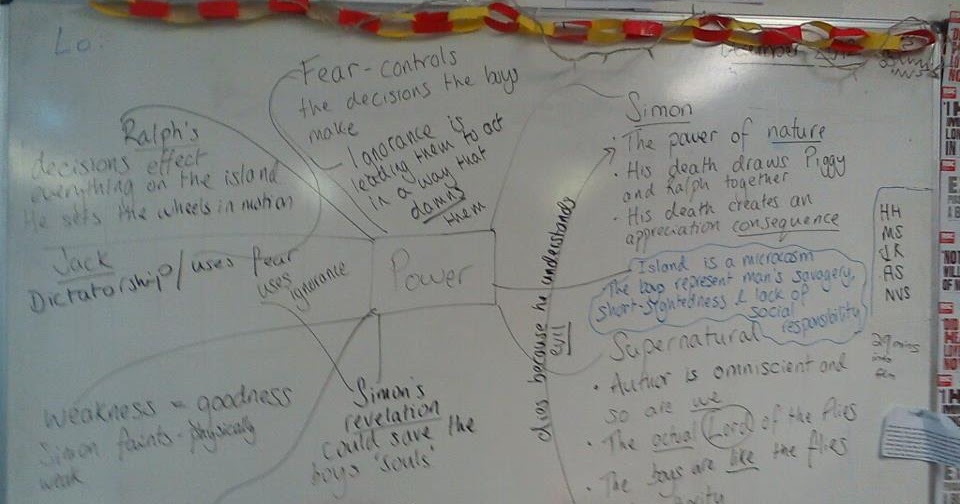 Lo.
December 2012
Fear - controls
the decisions the boys
make
Ignorance is
leading them to act
in a way that
damns
them
Ralph's
decisions effect
everything on the island
He sets the wheels in motion
Jack
Dictatorship/uses Fear
uses ignorance
Power
weakness = goodness
Simon faints - physically
weak
Simon's
revelation
could save the
boys 'souls'
dies because he understands
evil
Simon
• The power of nature
• His death draws Piggy
and Ralph together
• His death creates an
appreciation consequence
Island is a microcosm
The boys represent man's savagery,
short-sightedness & lack of
social
responsibility
Supernatural
• Author is omniscient and
so are we
• The actual Lord of the flies
• The boys are like the flies
HH
MS
JK
AS
NVS
29 mins
into
film